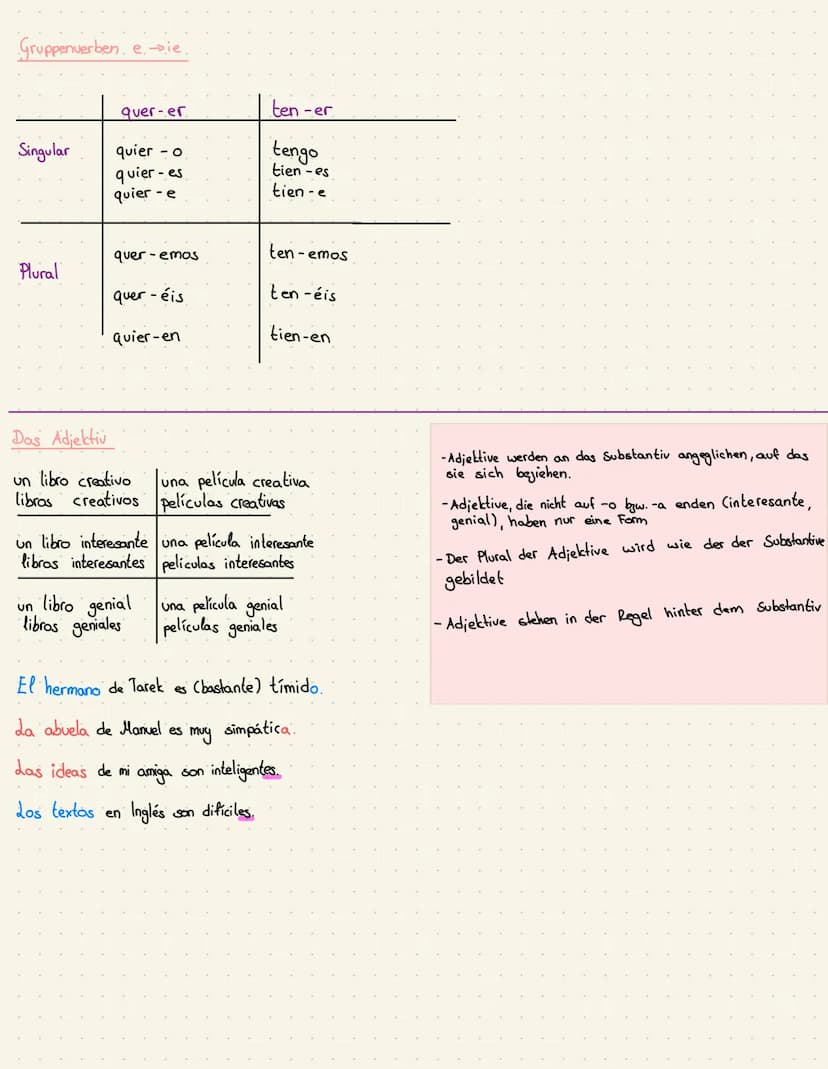 Gruppenverben e →ie
quer-er ten-er
Singular quier - o tengo
quier - es tien - es
quier - e tien - e
Plural quer - emos ten - emos
quer - éis ten - éis
quier-en tien-en
Das Adjektiv
un libro creativo una película creativa
libros creativos películas creativas
un libro interesante una película interesante
libros interesantes películas interesantes
un libro genial una película genial
libros geniales películas geniales
El hermano de Tarek es (bastante) tímido.
La abuela de Manuel es muy simpática.
Las ideas de mi amiga son inteligentes.
Los textos en Inglés son difíciles.
-Adjektive werden an das Substantiv angeglichen, auf das
sie sich beziehen.
-Adjektive, die nicht auf -o bzw. -a enden (interesante,
genial), haben nur eine Form
- Der Plural der Adjektive wird wie der der Substantive
gebildet
- Adjektive stehen in der Regel hinter dem Substantiv